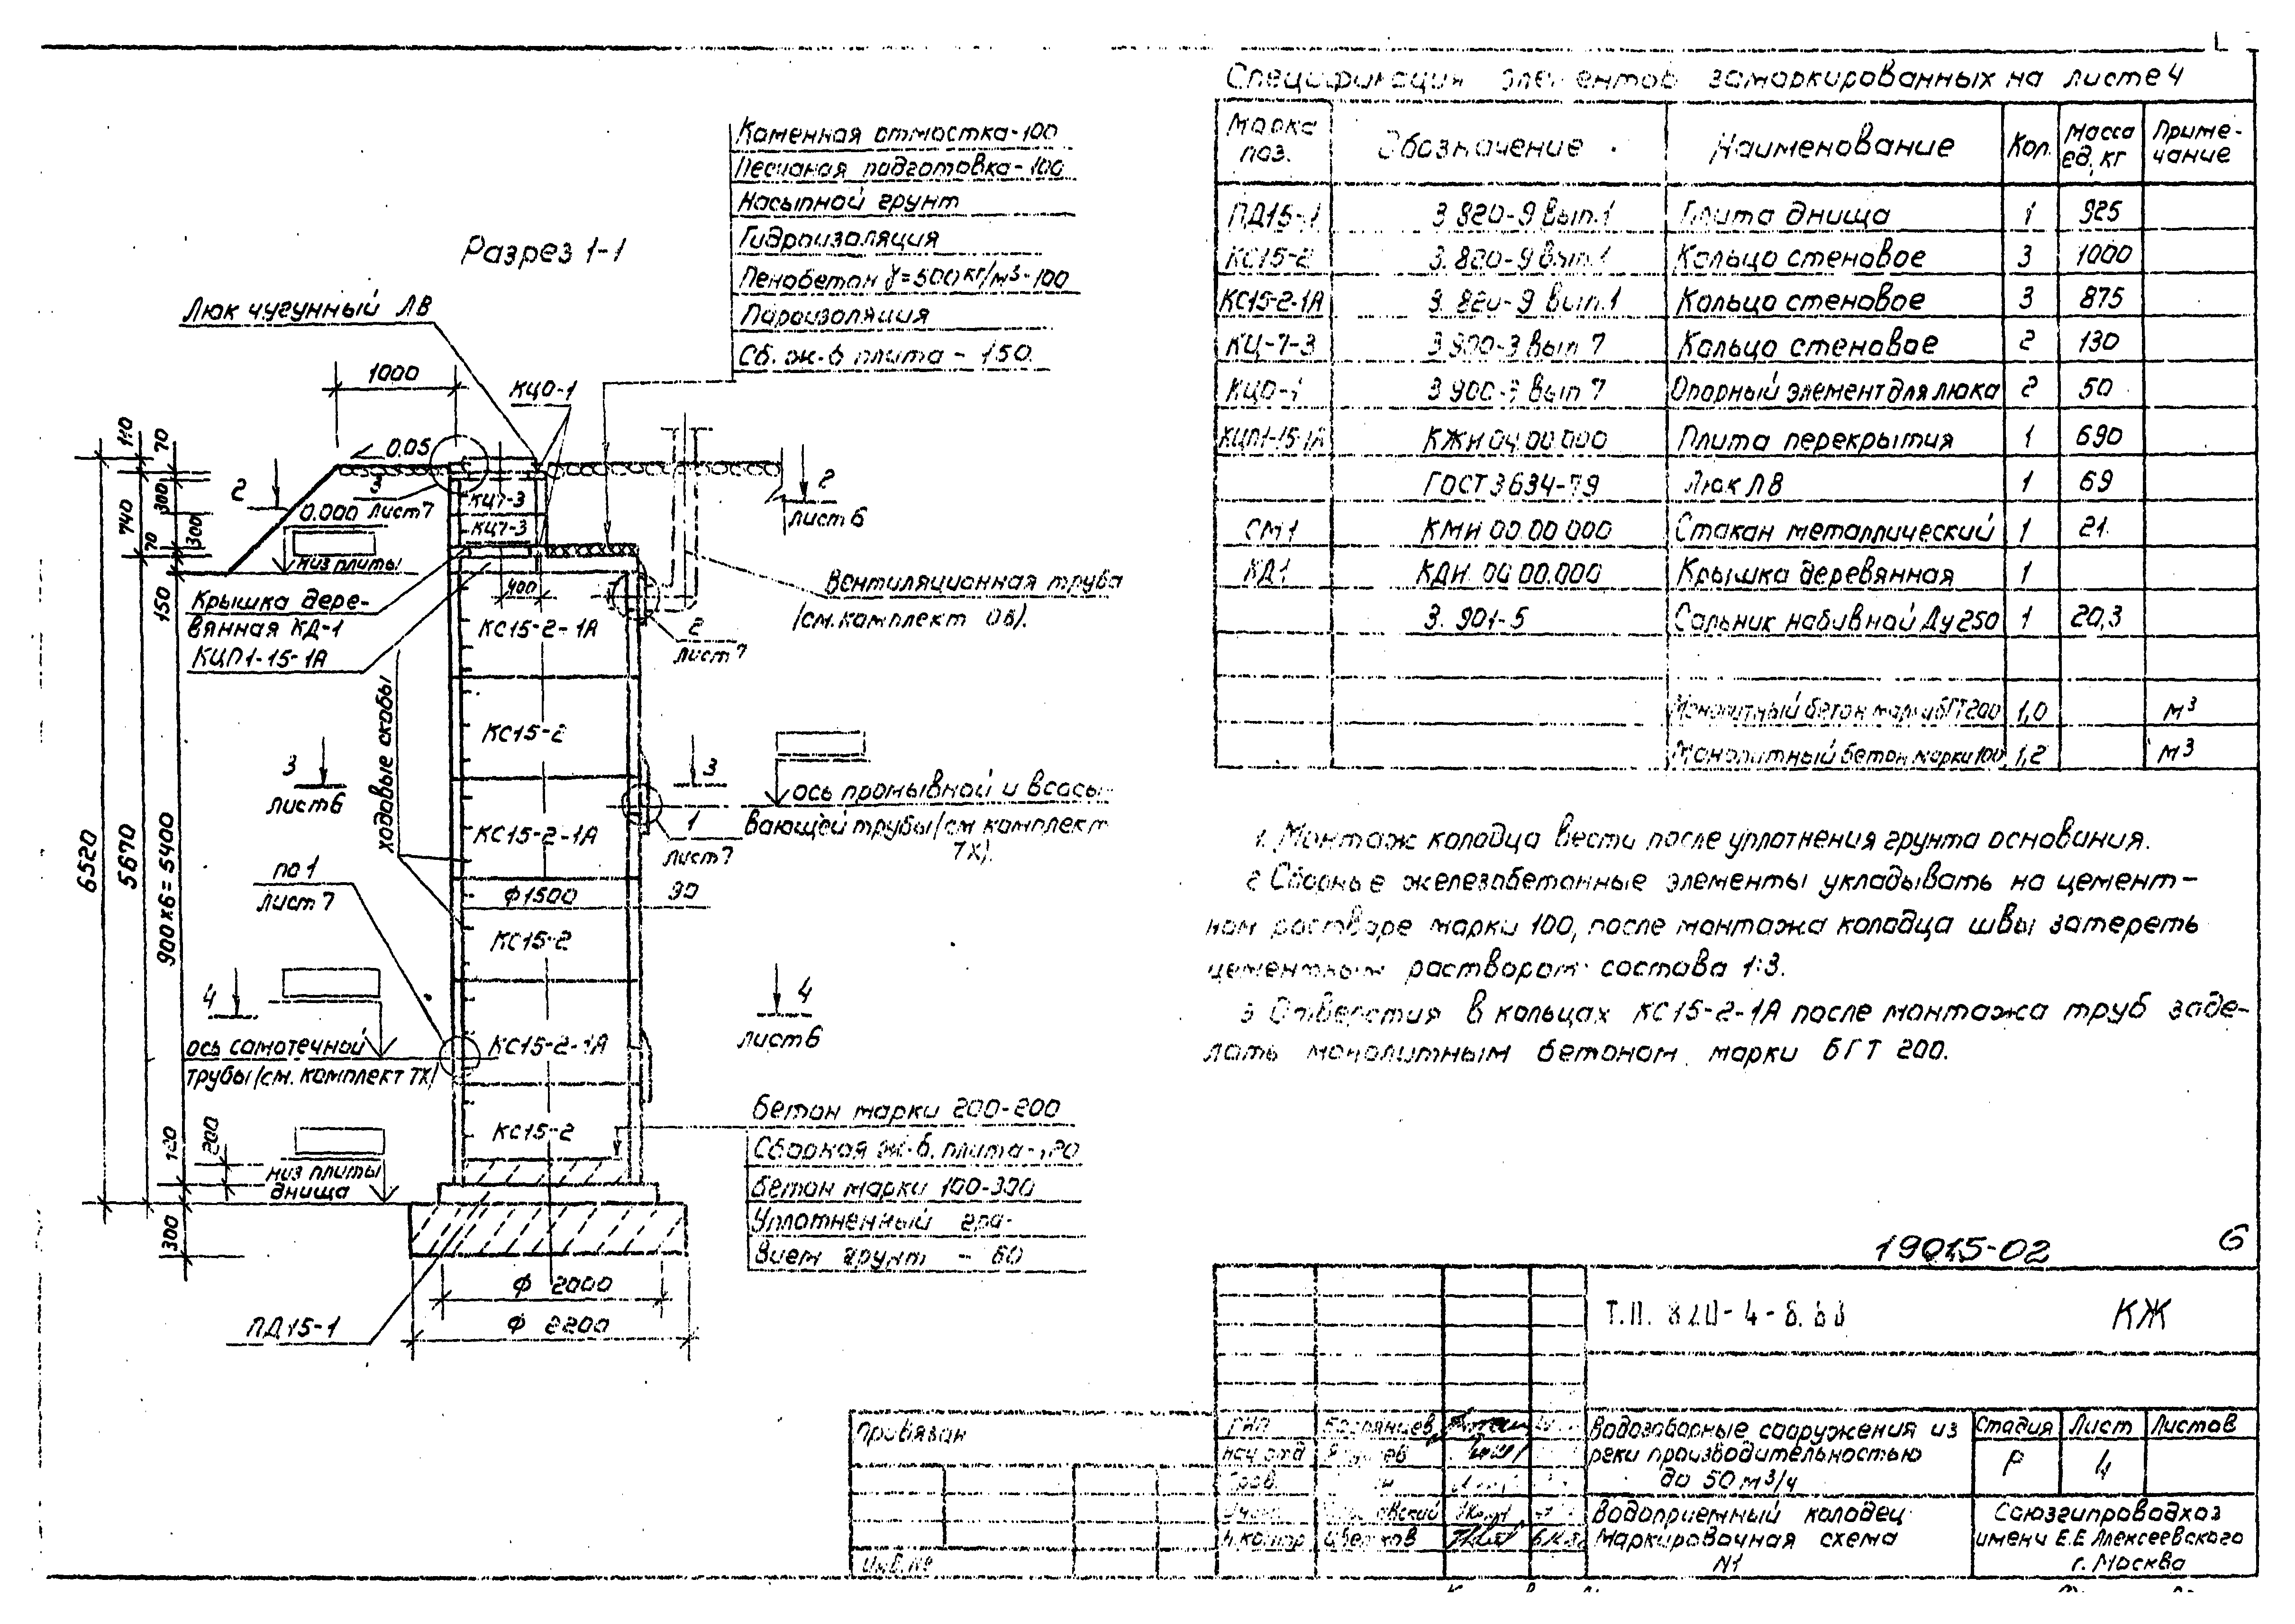 Спецификация элементов замаркированных на листе 4
Марка поз. Обозначение Наименование Кол. Масса ед, кг Приме-чание
ПД15-1 3.820-9 вып.1 Плита днища 1 925
КС15-2 3.820-9 вып.1 Кольцо стеновое 3 1000
КС15-2-1А 3.820-9 вып.1 Кольцо стеновое 3 875
КЦ-7-3 3.900-3 вып 7 Кольцо стеновое 2 130
КЦО-1 3.900-3 вып 7 Опорный элемент для люка 2 50
КЦП1-15-1А КЖИ.04.00.000 Плита перекрытия 1 690
ГОСТ 3634-79 Люк ЛВ 1 69
СМ1 КМИ 00.00 000 Стакан металлический 1 21.
КД1 КДИ. 00 00.000 Крышка деревянная 1
3. 901-5 Сальник набивной Ду250 1 20,3
Монолитный бетон марки БГТ200 1,0 м³
Монолитный бетон марки 100 1,2 м³
Разрез 1-1
Каменная отмостка-100
Песчаная подготовка-100
Насыпной грунт
Гидроизоляция
Пенобетон γ=500кг/м³-100
Пароизоляция
Сб. ж-б плита - 150.
Люк чугунный ЛВ
1000
КЦО-1
0.05
110
70
740
300
300
70
150
2
2
лист 6
лист 7
0.000
КЦ7-3
КЦ7-3
низ плиты
400
Крышка дере-
вянная КД-1
КЦП1-15-1А
Вентиляционная труба
(см.комплект ОВ).
2
лист 7
КС15-2-1А
ходовые скобы
КС15-2
3
лист 6
3
ось промывной и всасы-
вающей трубы (см комплект
ТХ).
1
лист 7
КС15-2-1А
6520
5670
900x6=5400
по 1
лист 7
Ф1500
90
КС15-2
4
4
лист 6
ось самотечной
трубы (см. комплект ТХ)
КС15-2-1А
КС15-2
120
200
300
низ плиты
днища
бетон марки 200-200
Сборная ж-б. плита-120
бетон марки 100-300
Уплотненный гра-
вием грунт - 60
Ф 2000
Ф 2200
ПД15-1
1. Монтаж колодца вести после уплотнения грунта основания.
2 Сборные железобетонные элементы укладывать на цемент-
ном растворе марки 100, после монтажа колодца швы затереть
цементным раствором состава 1:3.
3 Отверстия в кольцах КС15-2-1А после монтажа труб заде-
лать монолитным бетоном марки БГТ 200.
19015-02 6
Т.П. 820-4-
КЖ
Привязан
Инв.№
ГИП
Нач отд
Н.контр Цветков
Водозаборные сооружения из
реки производительностью
до 50 м³/ч
Стадия Лист Листов
Р 4
Водоприемный колодец
Маркировочная схема
N1
Союзгипроводхоз
имени Е.Е Алексеевского
г. Москва